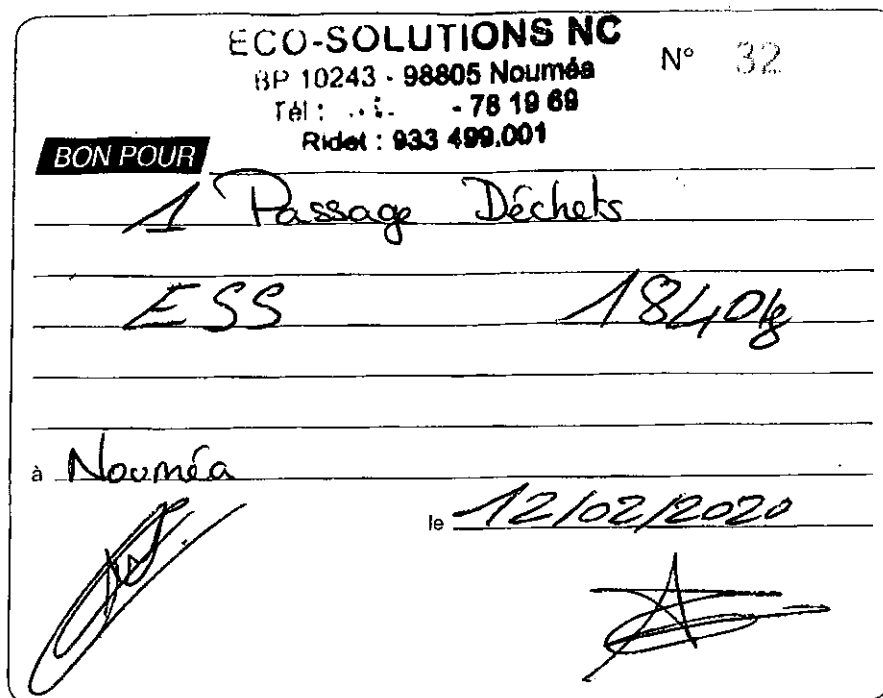 ECO-SOLUTIONS NC
N° 32
BP 10243 - 98805 Nouméa
Tél : - 78 19 69
Ridet : 933 499.001
BON POUR
1 Passage Déchets
ESS 1840kg
à Nouméa
le 12/02/2020